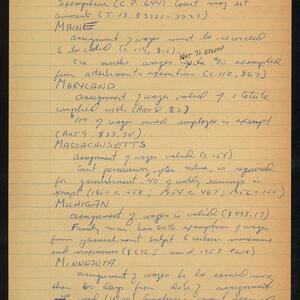 exemption (C.P. 644) Court may set
amounts (T. 13. §3725-3727)
MAINE
assignment of wages must be recorded
to be valid (c. 119, §12)
NOT TO EXCEED
One months wages exempted
from attachment exemption (c. 112, §67)
MARYLAND
assignment of wages valid if statute
complied with (Art 8 §2)
$100 of wages owed employee is exempt
(Art 9. §33.34).
MASSACHUSETTS
Assignment of wages valid (c. 154)
Court permission, after notice, is required
for garnishment. 40 of weekly earnings is
exempt (1960 c 558; 1954 c 467; 1956 c 155)
MICHIGAN
assignment of wages is valid (§ 493.17)
Family man has 60% exemption of wages
from garnishment subject to certain minimums
and maximums (§ 676; and 1953 #218)
MINNESOTA
assignment of wages to be earned more
than 60 days from date of assignment